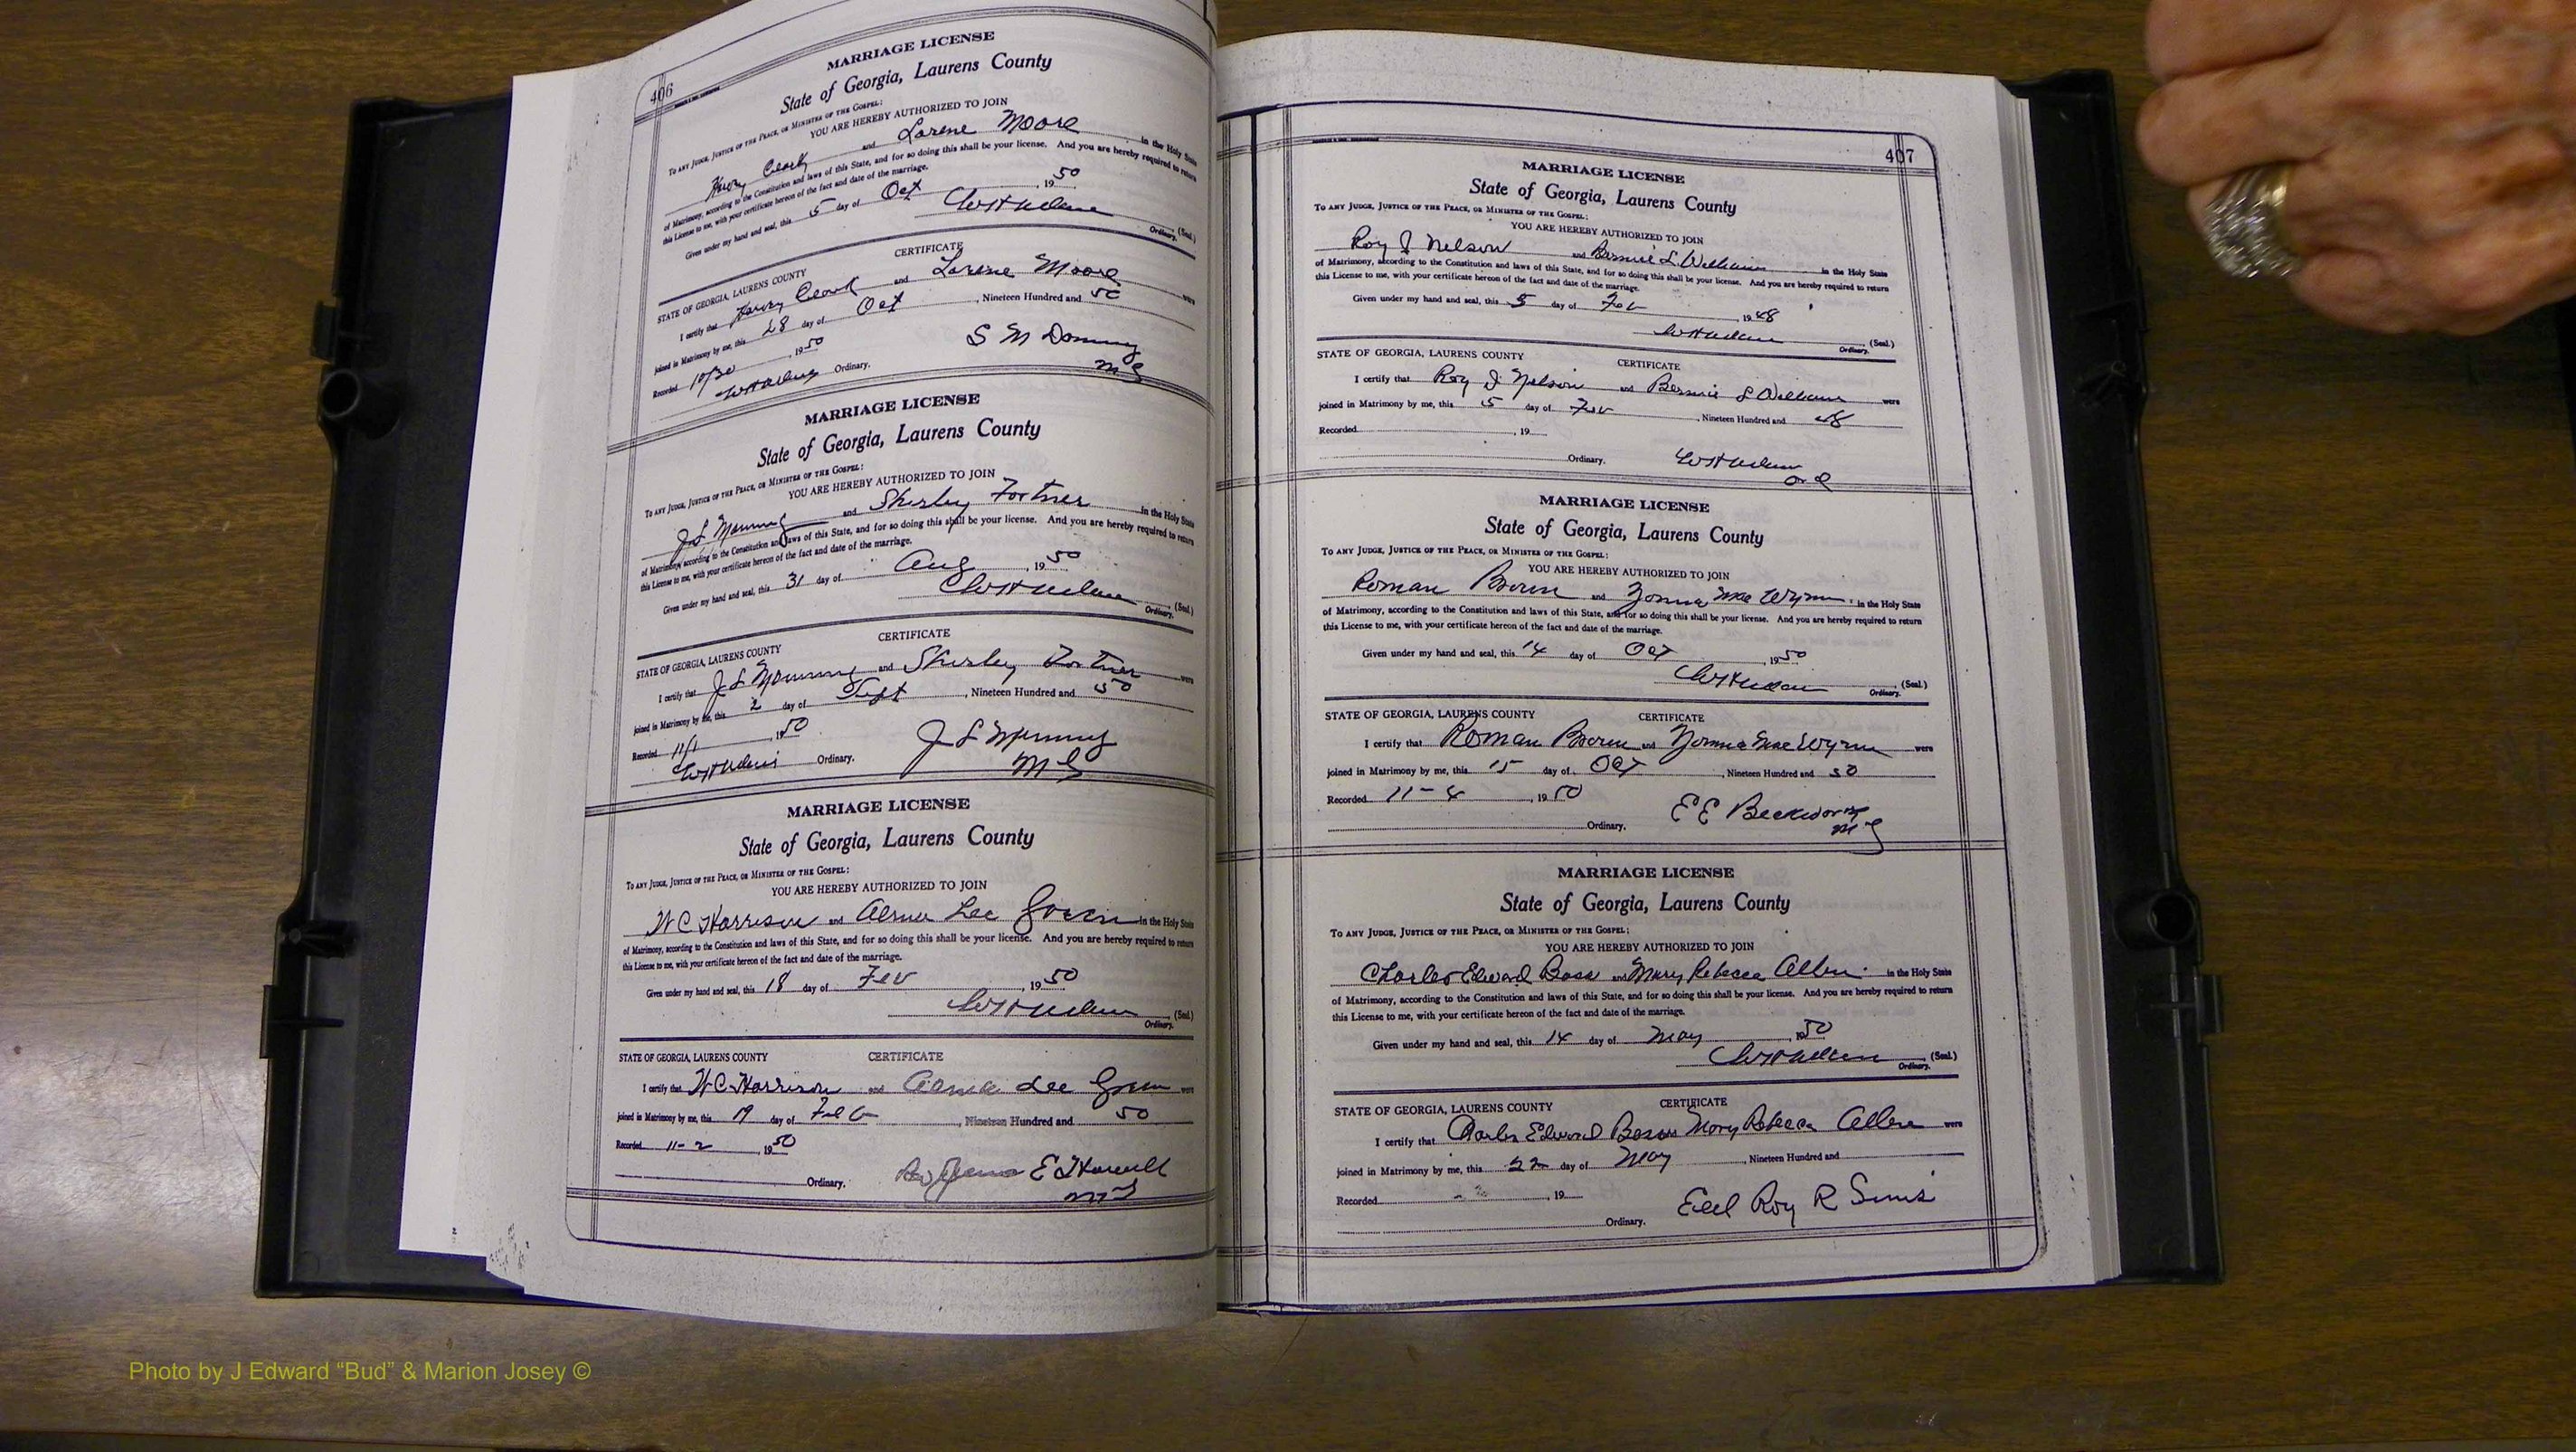 406
MARRIAGE LICENSE
State of Georgia, Laurens County
To any Judge, Justice of the Peace, or Minister of the Gospel:
YOU ARE HEREBY AUTHORIZED TO JOIN
and Lorene Moore in the Holy State
of Matrimony, according to the Constitution and laws of this State, and for so doing this shall be your license. And you are hereby required to return
this License to me, with your certificate hereon of the fact and date of the marriage.
Given under my hand and seal, this 5 day of Oct, 1950
(Seal.)
Ordinary.
CERTIFICATE
STATE OF GEORGIA, LAURENS COUNTY
I certify that and Lorene Moore were
joined in Matrimony by me, this 28 day of Oct, Nineteen Hundred and 50
Recorded 10/30, 1950
Ordinary.
S M
MG
MARRIAGE LICENSE
State of Georgia, Laurens County
To any Judge, Justice of the Peace, or Minister of the Gospel:
YOU ARE HEREBY AUTHORIZED TO JOIN
J L and Shirley Fortner in the Holy State
of Matrimony, according to the Constitution and laws of this State, and for so doing this shall be your license. And you are hereby required to return
this License to me, with your certificate hereon of the fact and date of the marriage.
Given under my hand and seal, this 31 day of Aug, 1950
(Seal.)
Ordinary.
CERTIFICATE
STATE OF GEORGIA, LAURENS COUNTY
I certify that J L and Shirley Fortner were
joined in Matrimony by me, this 2 day of Sept, Nineteen Hundred and 50
Recorded 11/1, 1950
Ordinary.
J L
MG
MARRIAGE LICENSE
State of Georgia, Laurens County
To any Judge, Justice of the Peace, or Minister of the Gospel:
YOU ARE HEREBY AUTHORIZED TO JOIN
W C Harrison and Lee Green in the Holy State
of Matrimony, according to the Constitution and laws of this State, and for so doing this shall be your license. And you are hereby required to return
this License to me, with your certificate hereon of the fact and date of the marriage.
Given under my hand and seal, this 18 day of Feb, 1950
(Seal.)
Ordinary.
STATE OF GEORGIA, LAURENS COUNTY CERTIFICATE
I certify that W C Harrison and Lee Green were
joined in Matrimony by me, this 19 day of Feb, Nineteen Hundred and 50
Recorded 11-2, 1950
Ordinary.
MG
407
MARRIAGE LICENSE
State of Georgia, Laurens County
To any Judge, Justice of the Peace, or Minister of the Gospel:
YOU ARE HEREBY AUTHORIZED TO JOIN
Roy J Nelson and Bernice L Williams in the Holy State
of Matrimony, according to the Constitution and laws of this State, and for so doing this shall be your license. And you are hereby required to return
this License to me, with your certificate hereon of the fact and date of the marriage.
Given under my hand and seal, this 5 day of Feb, 1948
(Seal.)
Ordinary.
STATE OF GEORGIA, LAURENS COUNTY CERTIFICATE
I certify that Roy J Nelson and Bernice L Williams were
joined in Matrimony by me, this 5 day of Feb, Nineteen Hundred and 48
Recorded, 19
Ordinary.
Ord
MARRIAGE LICENSE
State of Georgia, Laurens County
To any Judge, Justice of the Peace, or Minister of the Gospel:
YOU ARE HEREBY AUTHORIZED TO JOIN
Roman Brown and Mae Wynn in the Holy State
of Matrimony, according to the Constitution and laws of this State, and for so doing this shall be your license. And you are hereby required to return
this License to me, with your certificate hereon of the fact and date of the marriage.
Given under my hand and seal, this 14 day of Oct, 1950
(Seal.)
Ordinary.
STATE OF GEORGIA, LAURENS COUNTY CERTIFICATE
I certify that Roman Brown and Mae Wynn were
joined in Matrimony by me, this 15 day of Oct, Nineteen Hundred and 50
Recorded 11-4, 1950
Ordinary.
E E Beckworth
MG
MARRIAGE LICENSE
State of Georgia, Laurens County
To any Judge, Justice of the Peace, or Minister of the Gospel:
YOU ARE HEREBY AUTHORIZED TO JOIN
Charles Edward Bass and Mary Rebecca Allen in the Holy State
of Matrimony, according to the Constitution and laws of this State, and for so doing this shall be your license. And you are hereby required to return
this License to me, with your certificate hereon of the fact and date of the marriage.
Given under my hand and seal, this 14 day of May, 1950
(Seal.)
Ordinary.
STATE OF GEORGIA, LAURENS COUNTY CERTIFICATE
I certify that Charles Edward Bass Mary Rebecca Allen were
joined in Matrimony by me, this 22 day of May, Nineteen Hundred and
Recorded, 19
Ordinary.
Eld Roy R Sims
Photo by J Edward “Bud” & Marion Josey ©